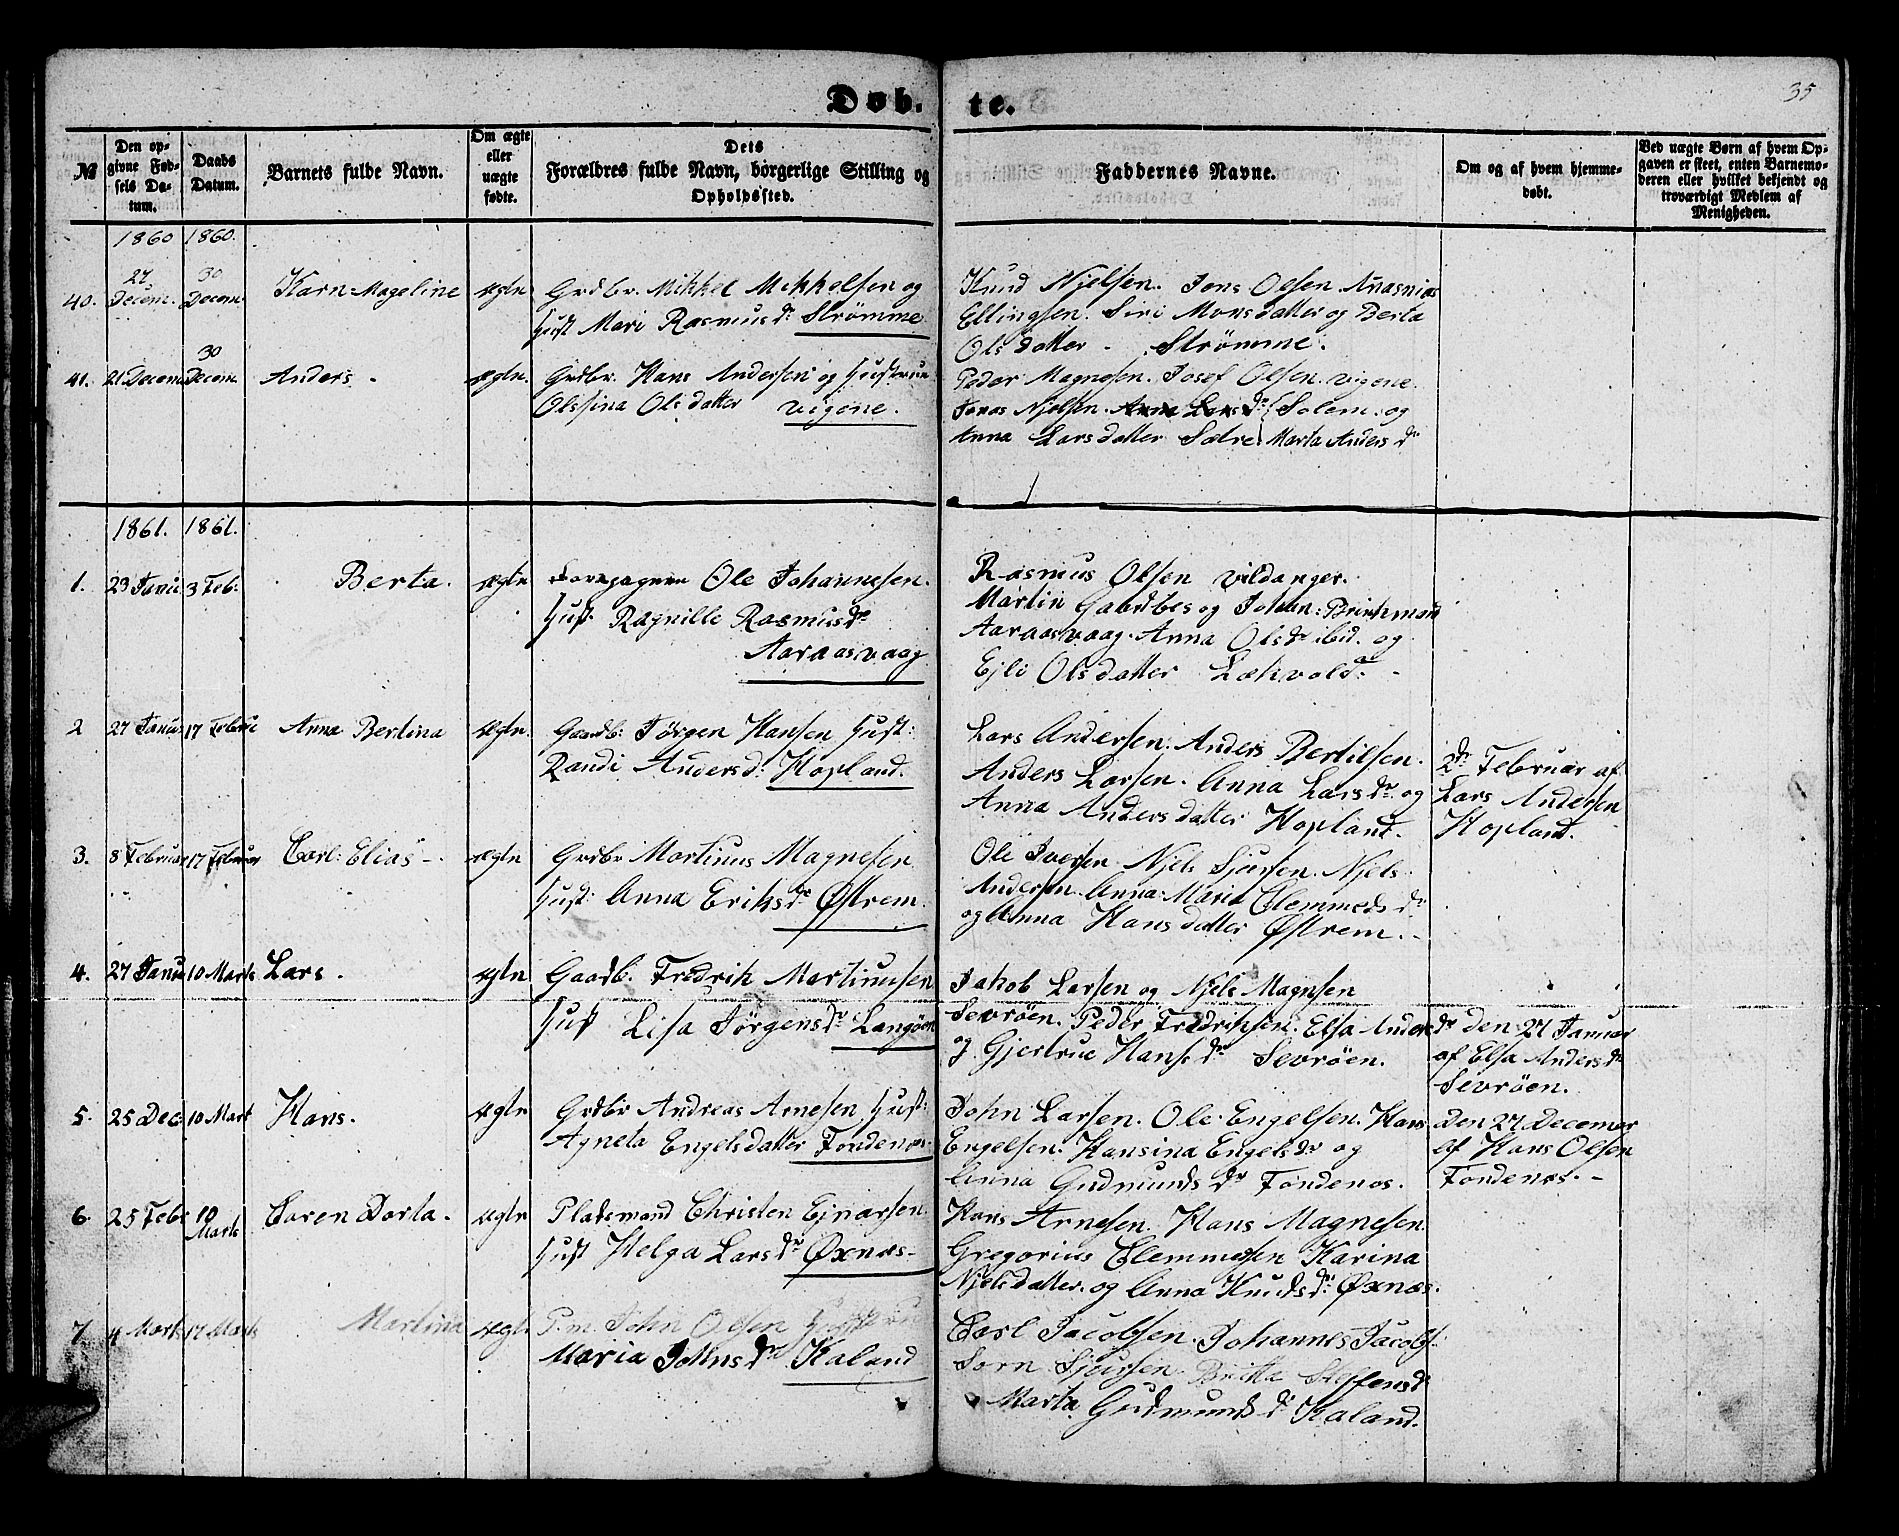 Døb-
te.
35
№
Den op-
givne Fød-
sels Da-
tum.
Daabs
Datum.
Barnets fulde Navn.
Om ægte
eller
uægte
fødte.
Dets
Forældres fulde Navn, borgerlige Stilling og
Opholdssted.
Faddernes Navne.
Om og af hvem hjemme-
døbt.
Ved uægte Børn af hvem Op-
gaven er skeet, enten Barnemo-
deren eller hvilket bekjendt og
troværdigt Medlem af
Menigheden.
1860 1860.
40. 27 Decem. 30 Decem Karn-Mageline ægte Grdbr. Mikkel Mikkelsen og
Hust Mari Rasmusdr Strømme
Knud Njelsen. Jens Olsen Ananias
Ellingsen. Siri Monsdatter og Berta
Olsdatter - Strømme.
41. 21 Decem 30 Decem. Anders - ægte. Grdbr. Hans Andersen og Hustrue
Olsina Olsdatter Vigene.
Peder Magnesen. Josef Olsen. Vigene.
Jonas Njelsen. Anna Larsdr Solem. og
Anna Larsdatter Sætre Marta Andersdr
1861. 1861.
1. 23 Janu 3 Feb: Berta. ægte Ole Johannesen.
Hust. Ragnille Rasmusdr
Aaraasvaag
Rasmus Olsen Vildanger.
Martin Gabr og Johan: Brinkmand
Aaraasvaag. Anna Olsdr ibid. og
Ejli Olsdatter
2 27 Janu: 17 Februe Anna Bertina ægte. Gaardb: Jørgen Hansen Hust:
Randi Andersd: Hopland.
Lars Andersen. Anders Bertilsen.
Anders Larsen. Anna Larsdr. og
Anna Andersdatter Hopland.
Februar af
Lars Andersen
Hopland.
3. 8 Februar 17 Februar Carl: Elias -. ægte Grdbr Martinus Magnesen
Hust: Anna Eriksdr Østrem.
Ole Iversen. Njels Sjursen. Njels
Andersen. Anna: Maria Clemmedsdr
og Anna Hansdatter Østrem.-
4. 27 Janu 10 Marts Lars. ægte Gaardb. Fredrik Martinusen
Hust Lisa Jørgensdr Langøen
Jakob Larsen og Njels Magnsen
Sevrøen. Peder Fredriksen. Elsa Anders
og. Gjertrue Hansdr Sevrøen.
dr den 27 Januar
af Elsa Andersdr
Sevrøen.
5. 25 Dec: 10 Mart Hans. ægte Grdbr Andreas Arnesen Hust:
Agneta Engelsdatter Fondenæs.
John Larsen. Ole Engelsen. Hans
Engelsen. Hansina Engelsdr og
Anna Gudmundsdr Fondenes.
den 27 Decemer
af Hans Olsen
Fondenæs. -
6. 25 Febr 10 Marts Caren Dorta. ægte Pladsmand Christen Ejnarsen
Hust Helga Larsdr Øxnæs-
Hans Arnesen. Hans Magnesen
Gregorius Clemmedsen Karina
Njelsdatter. og Anna Knudsdr Øxnæs.
7 4 Marts 17 Marts Martina ægte P.m. John Olsen Hustrue
Maria Johnsdr Kaland
Carl Jacobsen. Johannes Jacobs:
Sørn Sjursen Britta Steffensd
Marta Gudmundsdr Kaland.